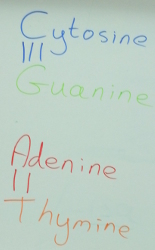 Cytosine
Guanine
Adenine
Thymine